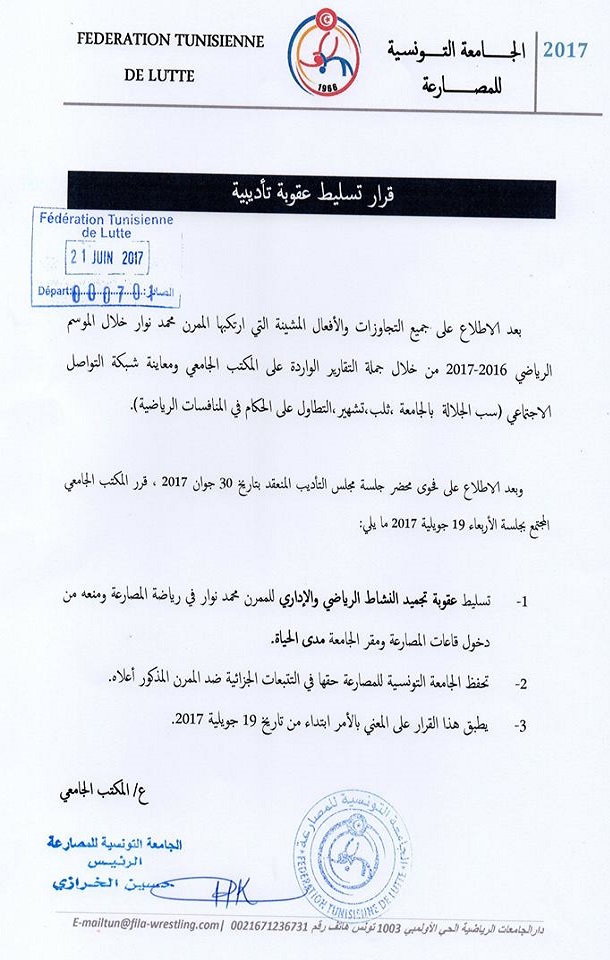 FEDERATION TUNISIENNE
DE LUTTE
1966
الجامعة التونسية
للمصارعة
2017
قرار تسليط عقوبة تأديبية
Fédération Tunisienne
de Lutte
21 JUIN 2017
Départ: 000701 الصادر:
بعد الاطلاع على جميع التجاوزات والأفعال المشينة التي ارتكبها الممرن محمد نوار خلال الموسم
الرياضي 2016-2017 من خلال جملة التقارير الواردة على المكتب الجامعي ومعاينة شبكة التواصل
الاجتماعي (سب الجلالة بالجامعة ،ثلب،تشهير،التطاول على الحكام في المنافسات الرياضية).
وبعد الاطلاع على فحوى محضر جلسة مجلس التأديب المنعقد بتاريخ 30 جوان 2017 ، قرر المكتب الجامعي
المجتمع بجلسة الأربعاء 19 جويلية 2017 ما يلي:
1- تسليط عقوبة تجميد النشاط الرياضي والإداري للممرن محمد نوار في رياضة المصارعة ومنعه من
دخول قاعات المصارعة ومقر الجامعة مدى الحياة.
2- تحفظ الجامعة التونسية للمصارعة حقها في التتبعات الجزائية ضد الممرن المذكور أعلاه.
3- يطبق هذا القرار على المعني بالأمر ابتداء من تاريخ 19 جويلية 2017.
ع/ المكتب الجامعي
الجامعة التونسية للمصارعة
الرئيس
حسين الخرازي
الجامعة التونسية للمصارعة
FEDERATION TUNISIENNE DE LUTTE
دار الجامعات الرياضية الحي الأولمبي 1003 تونس هاتف رقم 0021671236731 |E-mailtun@fila-wrestling.com